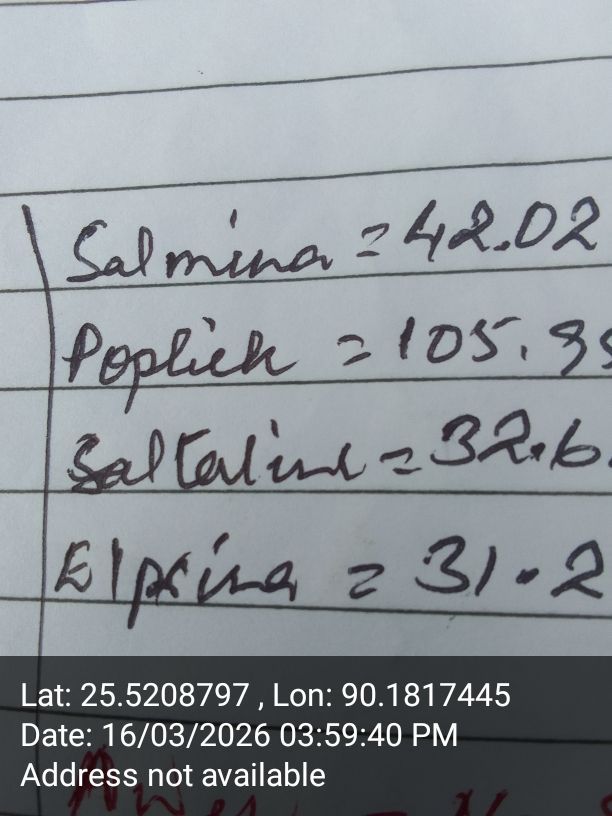 Salmina = 42.02
Poplick = 105.
Saltaline = 32.6
Elprina = 31.2
Lat: 25.5208797 , Lon: 90.1817445
Date: 16/03/2026 03:59:40 PM
Address not available